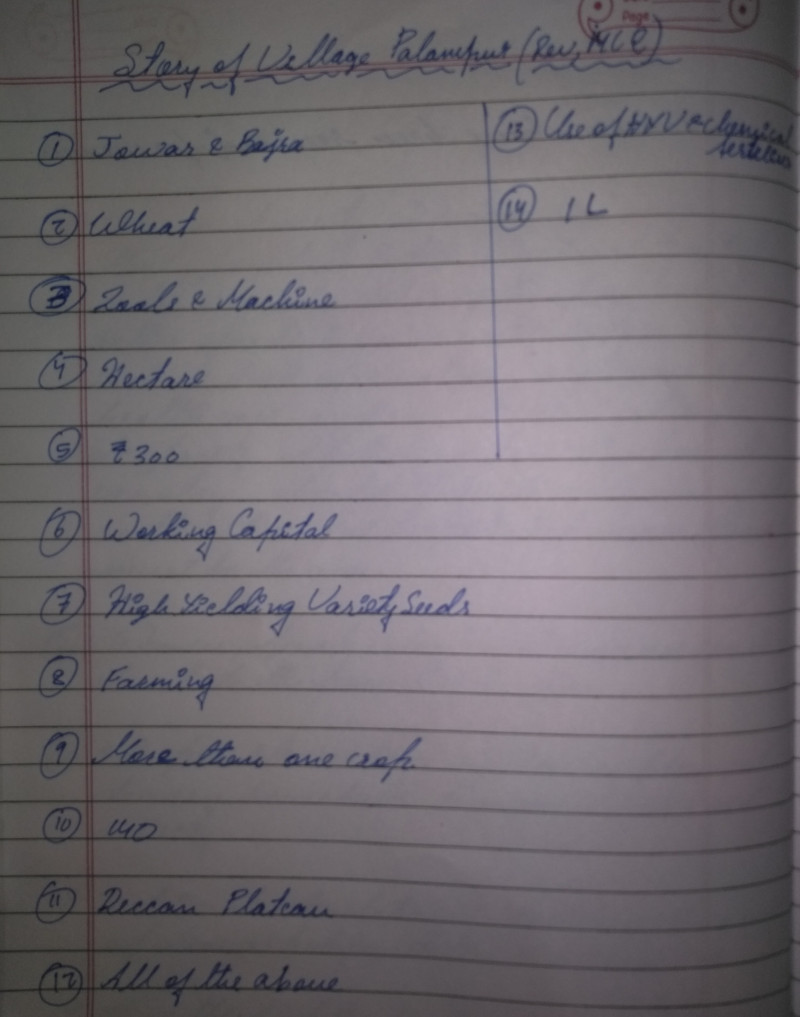 Page
Story of Village Palampur (Rev, MCQ)
① Jowar & Bajra
② Wheat
③ Tools & Machine
④ Hectare
⑤ ₹300
⑥ Working Capital
⑦ High Yielding Variety Seeds
⑧ Farming
⑨ More than one crop
⑩ 140
⑪ Deccan Plateau
⑫ All of the above
⑬ Use of HYV & chemical
fertilizers
⑭ 1L